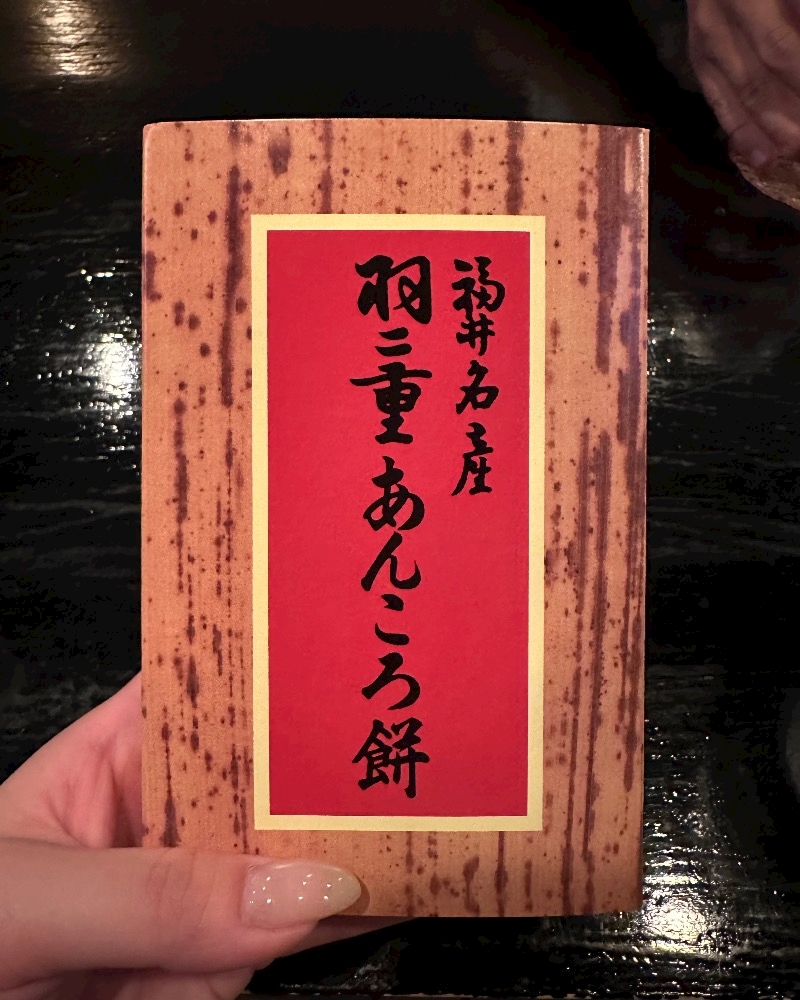 福井名産
羽二重あんころ餅